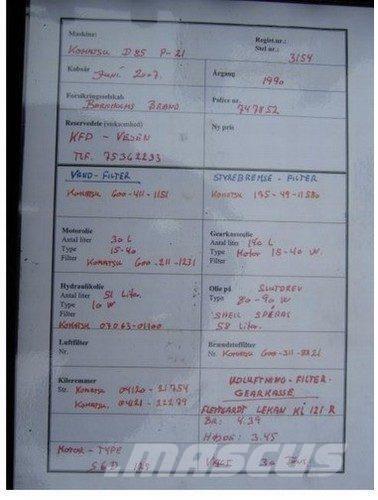 Maskine:
KOMATSU D 85 P-21
Regist.nr.:
Stel nr.:
3154
Købsår
Juni 2007.
Årgang
1990
Forsikringsselskab
BORNHOLMS BRAND
Police nr.
747852
Reservedele (virksomhed)
KFD - VEJEN
TLF. 75362233
Ny pris
VAND-FILTER
KOMATSU 600-411-1151
STYREBREMSE-FILTER
KOMATSU 195-49-11580
Motorolie
Antal liter 30 L
Type 15-40
Filter KOMATSU 600-211-1231
Gearkasseolie
Antal liter 140 L
Type Motor 15-40 W.
Filter
Hydraulikolie
Antal liter 51 Liter.
Type 10 W
Filter
KOMATSU 07063-01100
Olie på SLUTDREV
Type 80-90 W
SHELL
58 Liter.
Luftfilter
Nr.
Brændstoffilter
Nr. KOMATSU 600-311-8321
Kileremmer
Str. KOMATSU 04120-21754
KOMATSU. 04121-22279
UDLUFTNING-FILTER-
GEARKASSE
LEKAN KI 121 R
BR: 4.39
HØJDE: 3.45
MOTOR-TYPE
S6D 125
VÆGT
MASCUS